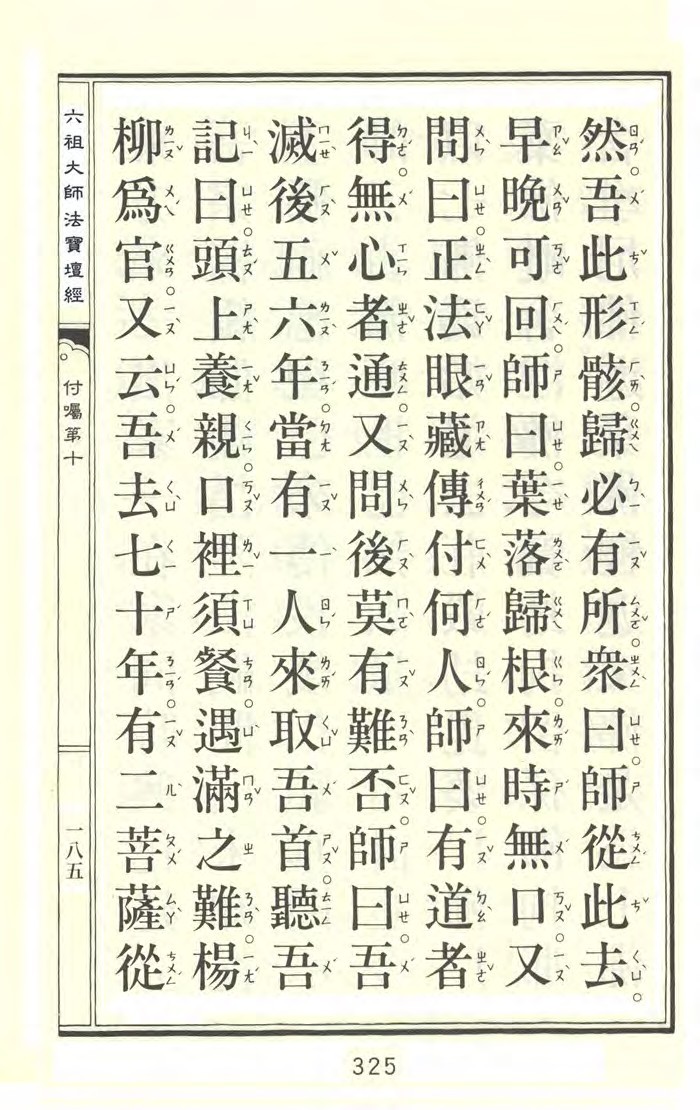 然吾此形骸歸必有所。衆曰。師從此去。
早晚可回。師曰。葉落歸根。來時無口。又
問曰。正法眼藏。傳付何人。師曰。有道者
得。無心者通。又問。後莫有難否。師曰。吾
滅後五六年。當有一人來取吾首。聽吾
記曰。頭上養親。口裡須餐。遇滿之難。楊
柳爲官。又云。吾去七十年。有二菩薩從
六祖大師法寶壇經
付囑第十
一八五
325